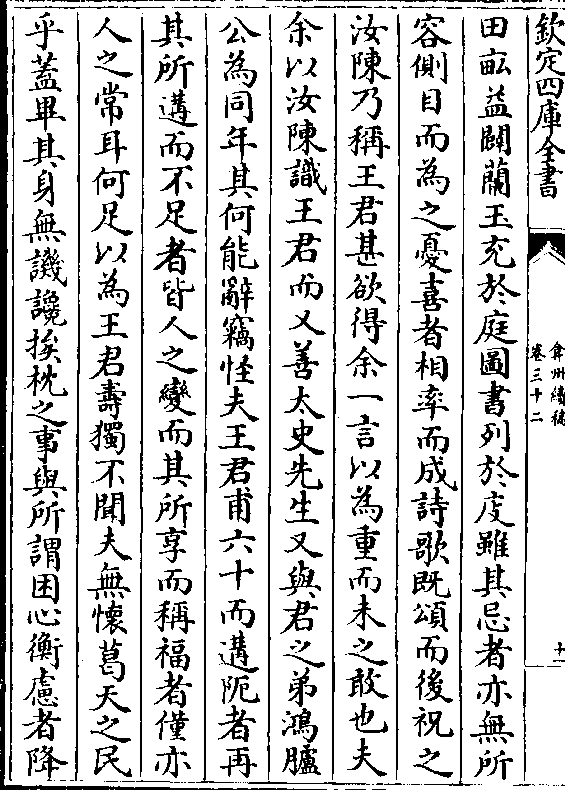 欽定四庫全書
弇州續稿
卷三十二
十一
田畝益闢蘭玉充於庭圖書列於庋雖其忌者亦無所
容側目而為之憂喜者相率而成詩歌既頌而後祝之
汝陳乃稱王君甚欲得余一言以為重而未之敢也夫
余以汝陳識王君而又善太史先生又與君之弟鴻臚
公為同年其何能辭竊怪夫王君甫六十而遘阨者再
其所遘而不足者皆人之變而其所享而稱福者僅亦
人之常耳何足以為王君壽獨不聞夫無懷葛天之民
乎蓋畢其身無譏讒挨枕之事與所謂困心衡慮者降